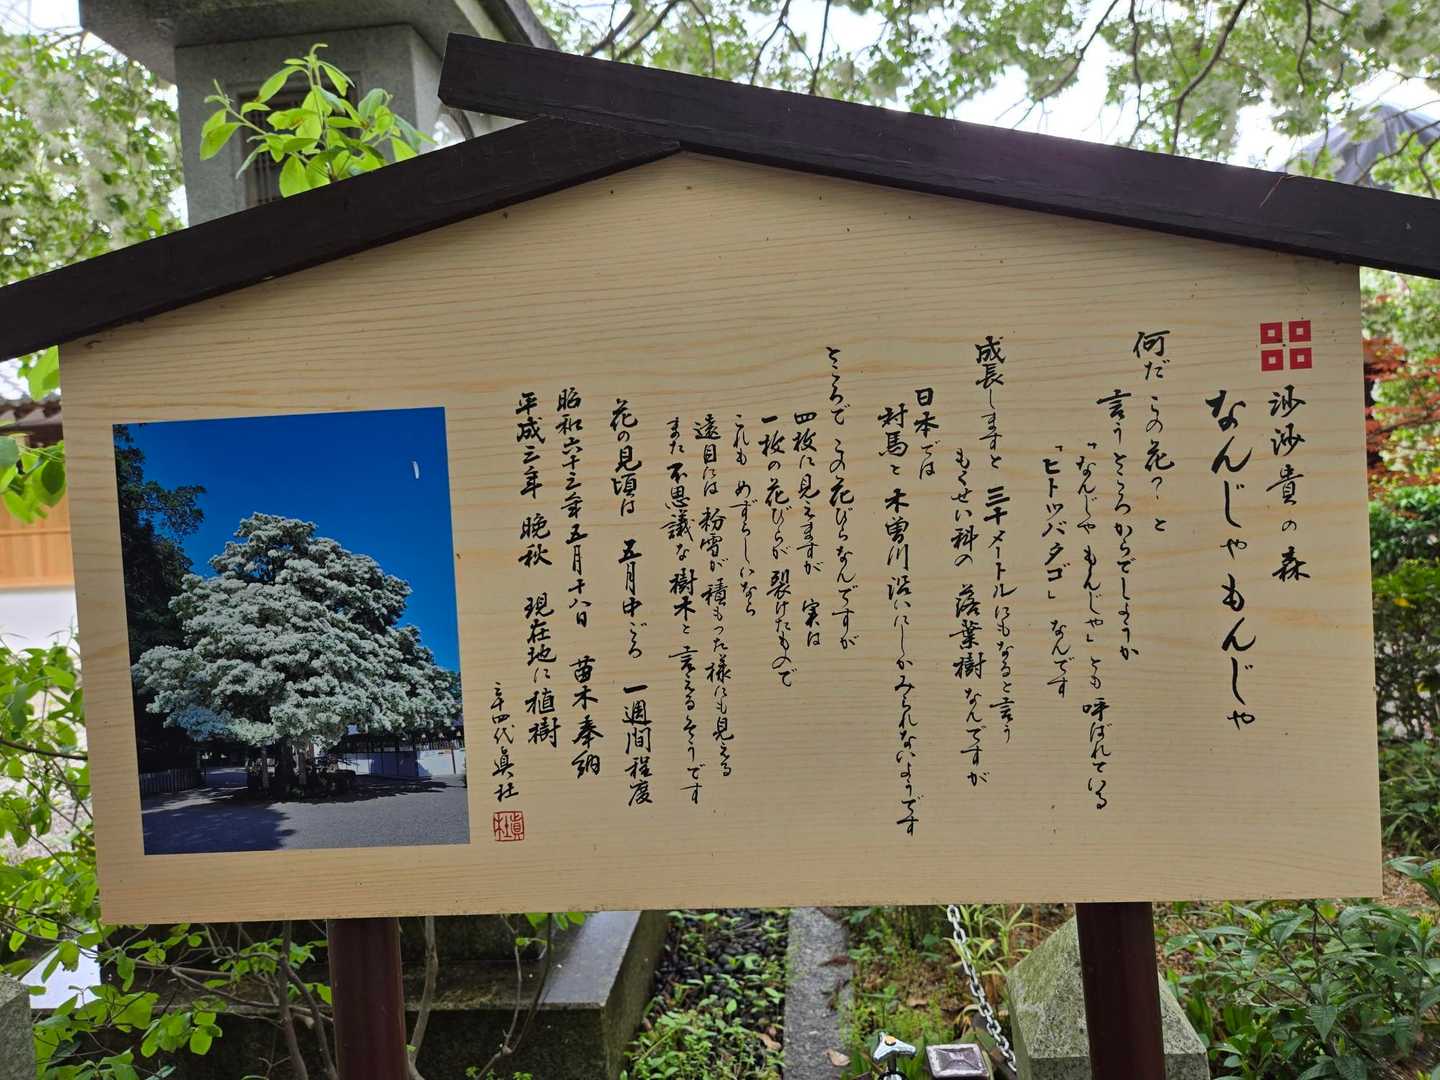 沙沙貴の森
なんじゃもんじゃ
何だ この花っ と
言うところからでしょうか
「なんじゃ もんじゃ」とも 呼ばれている
「ヒトツバタゴ」なんです
成長しますと 三十メートルにもなると言う
もくせい科の 落葉樹なんですが
日本では
対馬と 木曽川沿いにしかみられないようです
ところで この花びらなんですが
四枚に見えますが 実は
一枚の花びらが 裂けたもので
これも めずらしいなら
遠目には 粉雪が積もった様にも見える
また 不思議な樹木と言えるそうです
花の見頃は 五月中ごろ 一週間程度
昭和六十三年五月十八日 苗木奉納
平成三年 晩秋 現在地に植樹
三十四代眞社